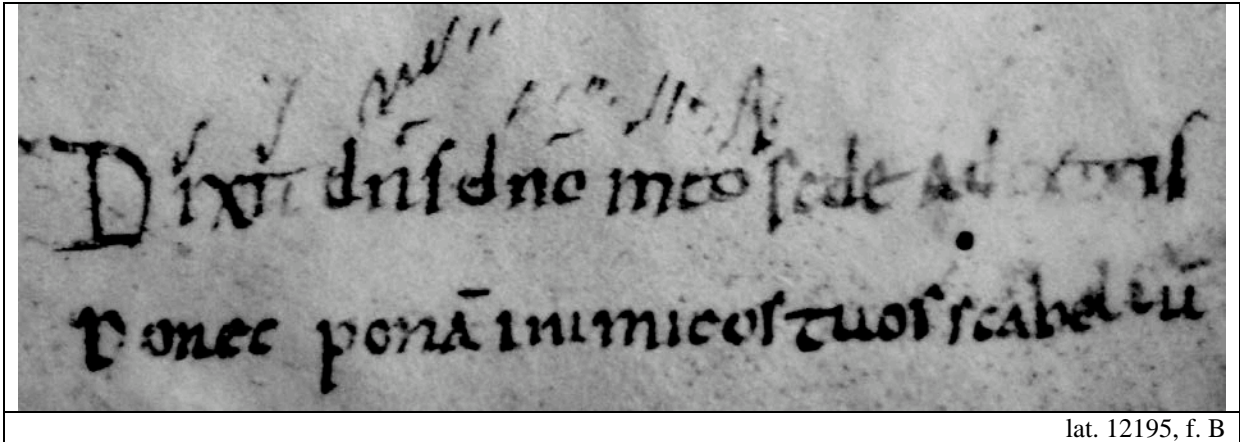 Dixit dn̄s dn̄o meo sede a dextris
Donec ponā inimicos tuos scabellū
lat. 12195, f. B